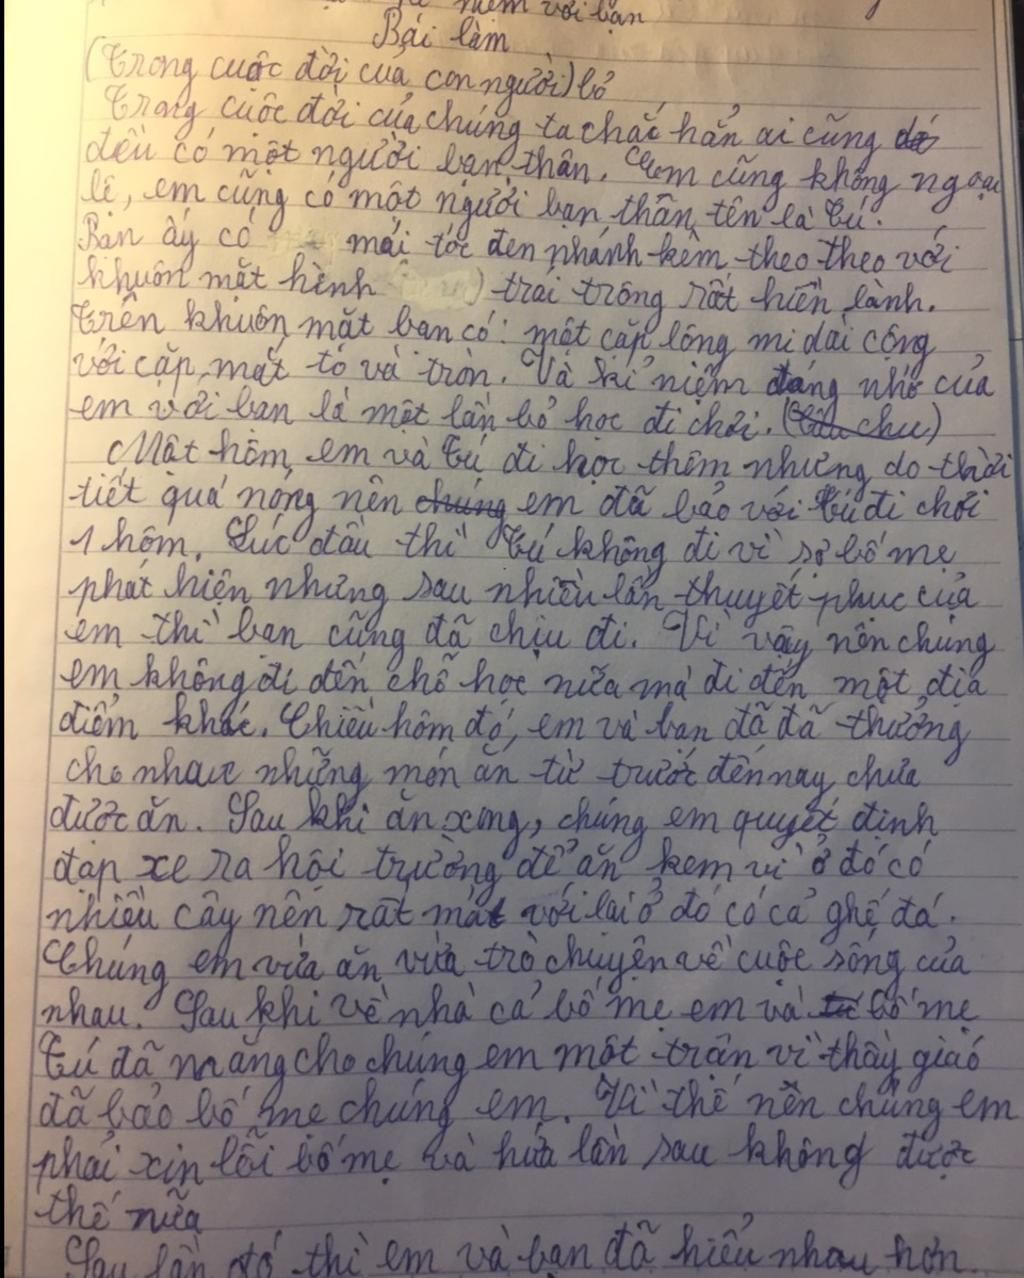 niệm với bạn
Bài làm
(Trong cuộc đời của con người) bỏ
Trong cuộc đời của chúng ta chắc hẳn ai cũng đó
đều có một người bạn thân. Em cũng không ngoại
lệ, em cũng có một người bạn thân tên là Tú.
Bạn ấy có mái tóc đen nhánh kèm theo theo với
khuôn mặt hình ) trái trông rất hiền lành.
Trên khuôn mặt bạn có: một cặp lông mi dài cộng
với cặp mắt to và tròn. Và kỉ niệm đáng nhớ của
em với bạn là một lần bỏ học đi chơi. (Câu chu)
Một hôm, em và Tú đi học thêm nhưng do thời
tiết quá nóng nên chúng em đã bảo với Tú đi chơi
1 hôm. Lúc đầu thì Tú không đi vì sợ bố mẹ
phát hiện nhưng sau nhiều lần thuyết phục của
em thì bạn cũng đã chịu đi. Vì vậy nên chúng
em không đi đến chỗ học nữa mà đi đến một địa
điểm khác. Chiều hôm đó, em và bạn đã đã thưởng
cho nhau những món ăn từ trước đến nay chưa
được ăn. Sau khi ăn xong, chúng em quyết định
đạp xe ra hội trường để ăn kem vì ở đó có
nhiều cây nên rất mát với lại ở đó có cả ghế đá.
Chúng em vừa ăn vừa trò chuyện về cuộc sống của
nhau. Sau khi về nhà cả bố mẹ em và Tú bố mẹ
Tú đã mắng cho chúng em một trận vì thầy giáo
đã bảo bố mẹ chúng em. Vì thế nên chúng em
phải xin lỗi bố mẹ và hứa lần sau không được
thế nữa
Sau lần đó thì em và bạn đã hiểu nhau hơn